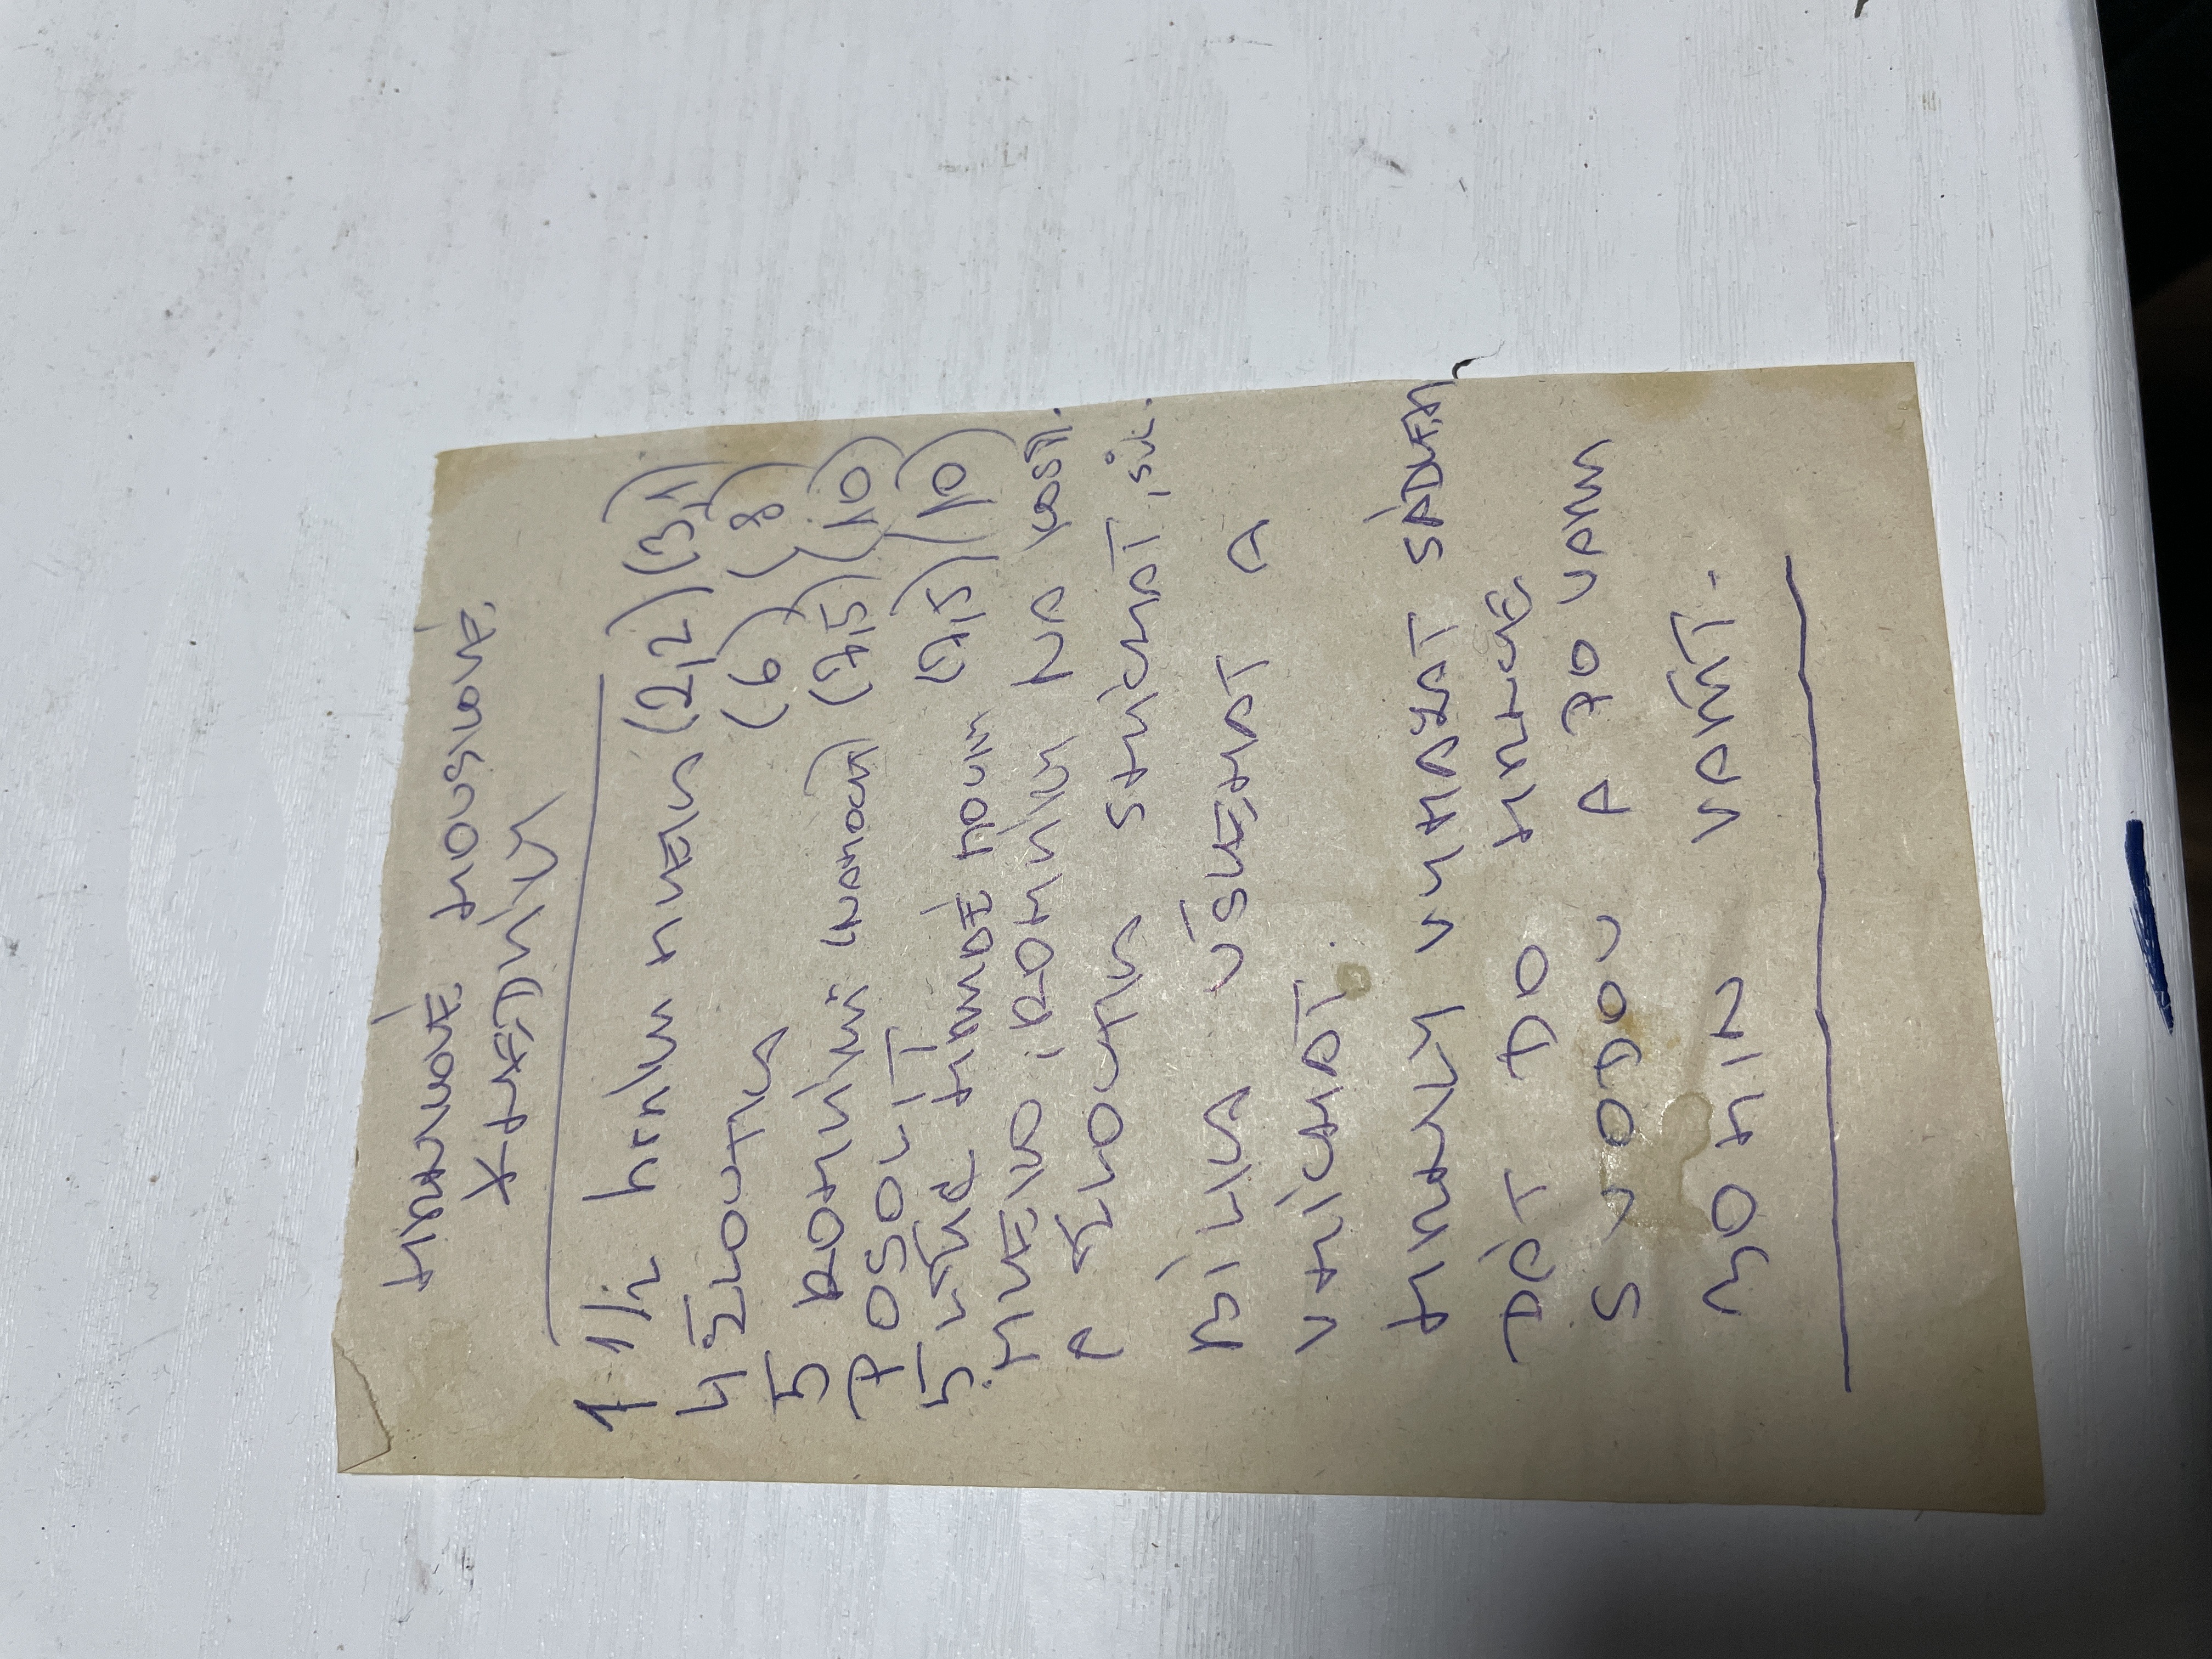 HRNKOVÉ HOUSKOVÉ
KNEDLÍKY
1 1/2 hrnku MLEKA (2,2) (3,1)
4 ŽLOUTKA (6) (8)
5 ROHLÍKŮ (NAMOČIT) (7,5) (10)
POSOLIT
5 LŽIC HRUBÉ MOUKY (7,5) (10)
MLEKO, ROHLÍKY NA KOST.
A ŽLOUTKA SMÍCHAT, SŮL.
BÍLKA UŠLEHAT A
VMÍCHAT.
HRNKY VYMAZAT SÁDLEM
DÁT DO HRNCE
S VODOU A PO VARU
30 MIN VAŘIT.